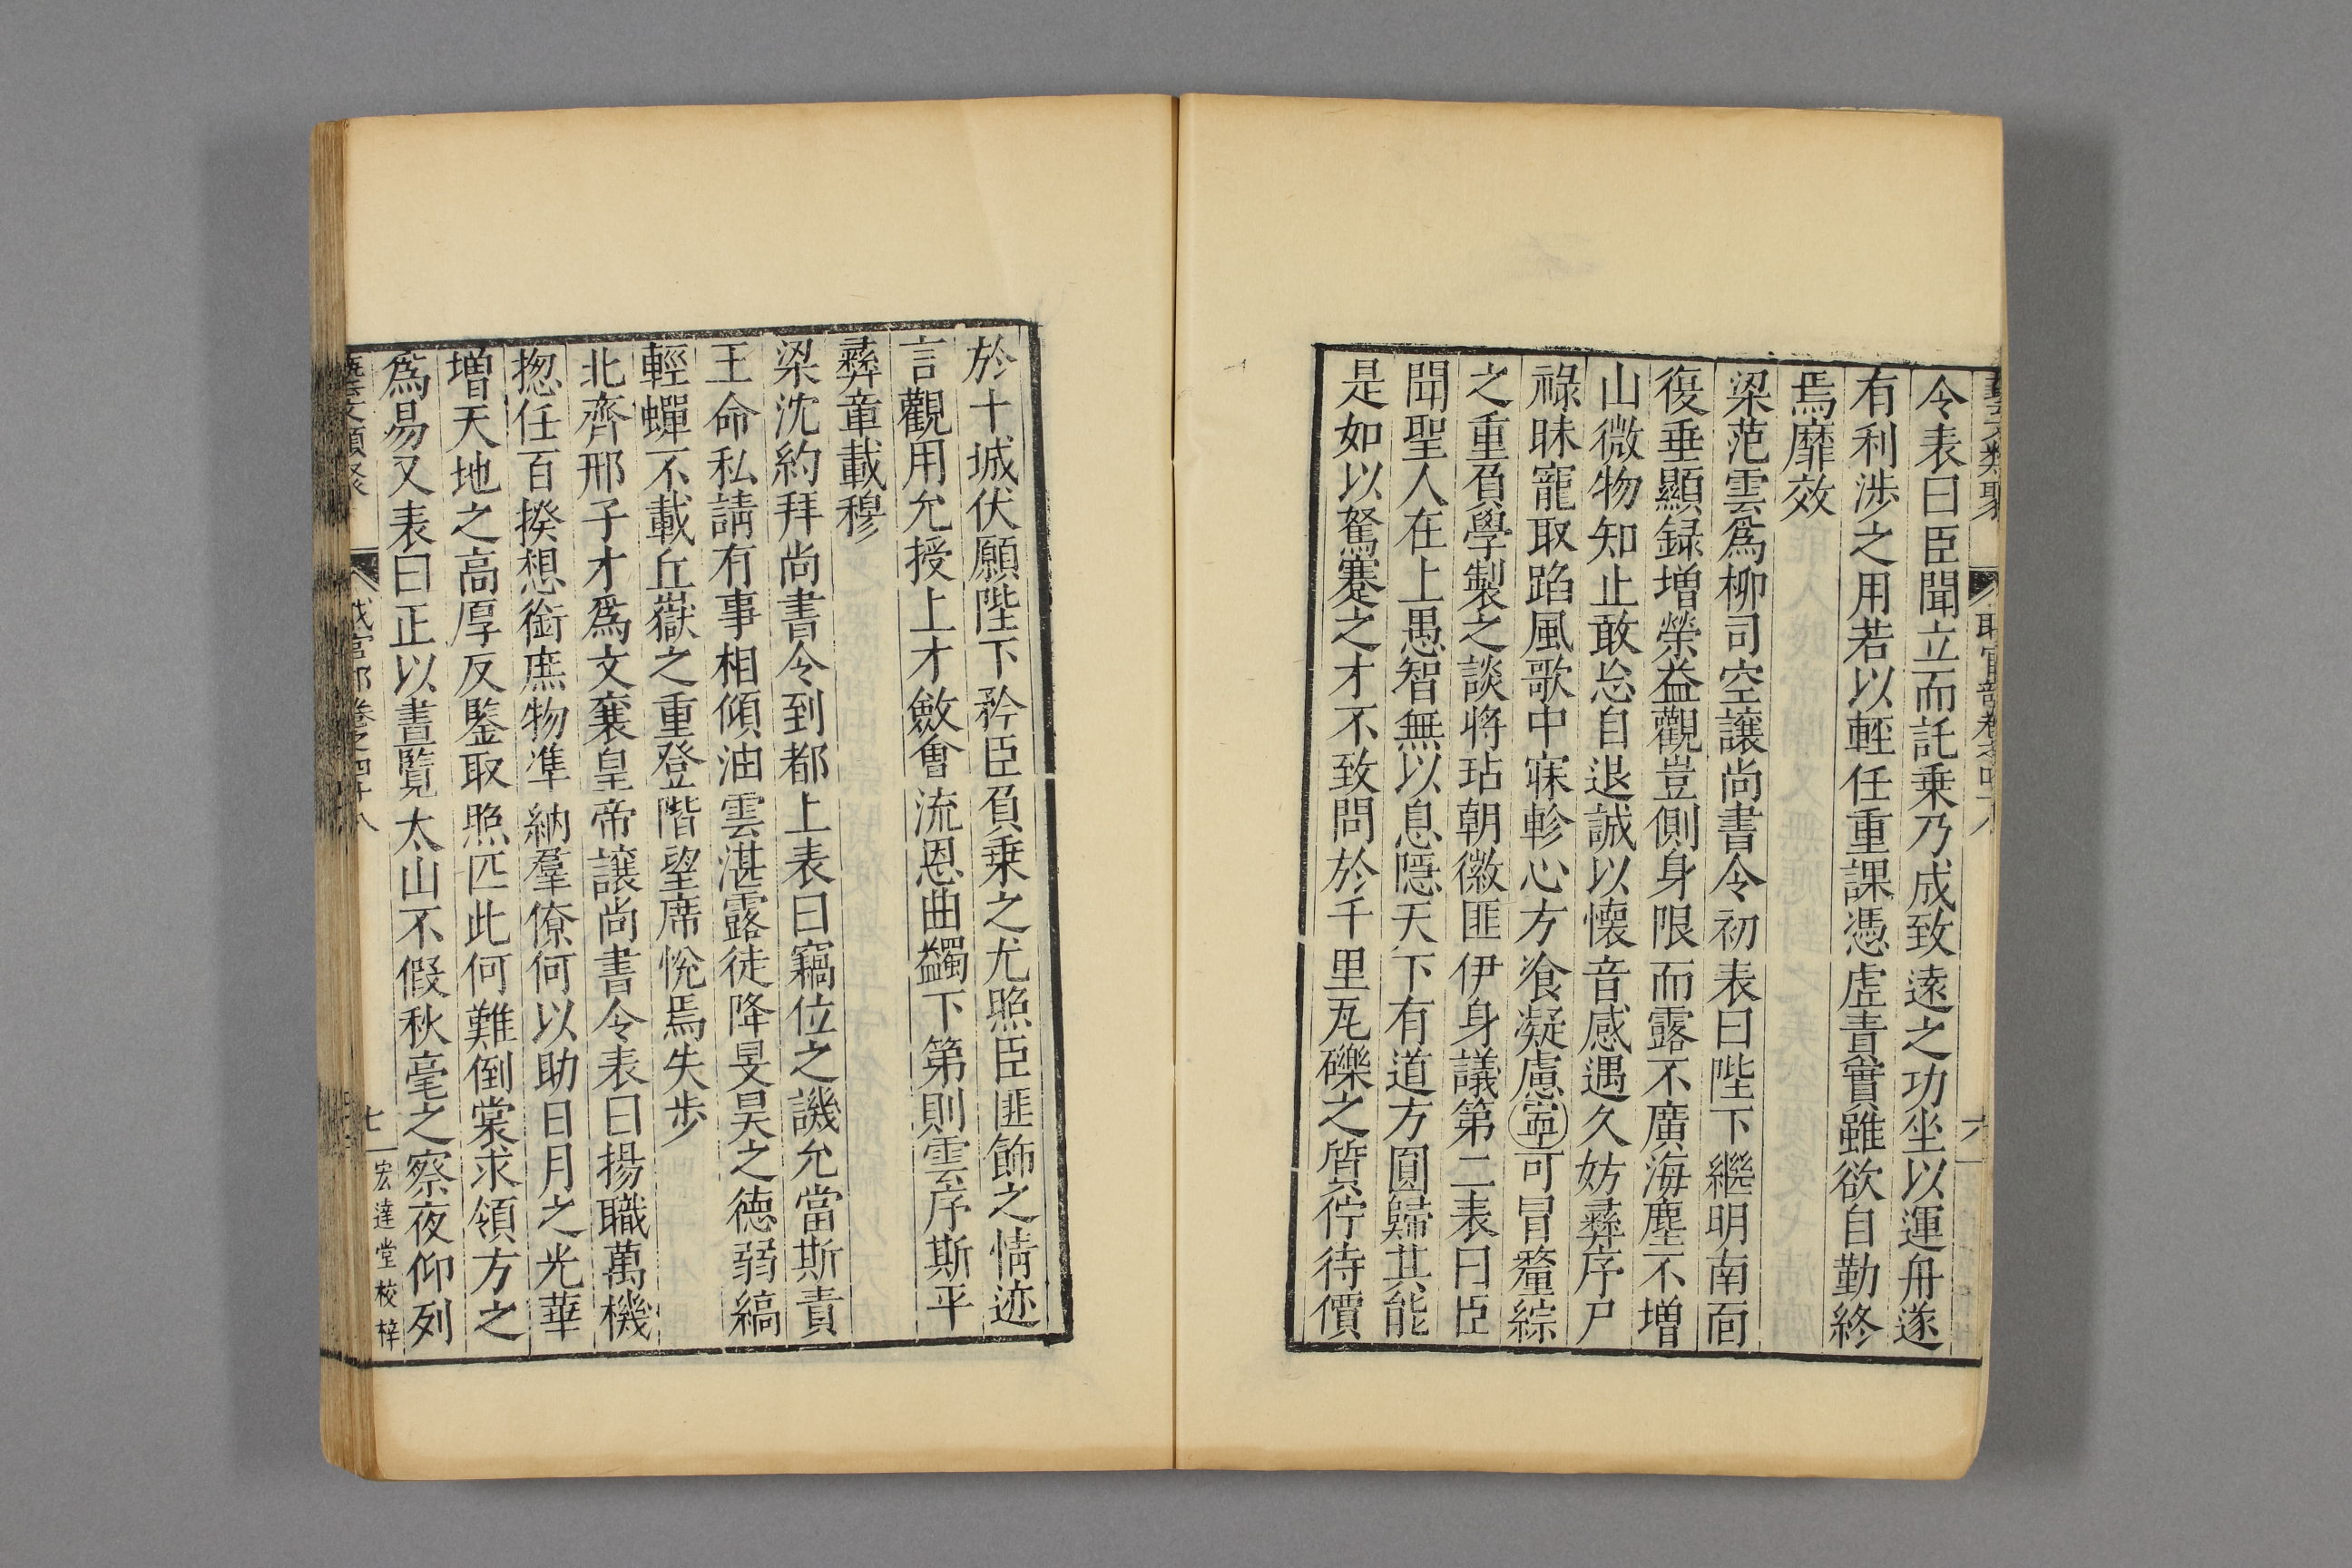 藝文類聚 職官部卷之四十八 六
令表曰臣聞立而託乗乃成致遠之功坐以運舟遂
有利渉之用若以輕任重課憑虛責實雖欲自勤終
焉靡效
梁范雲爲柳司空讓尚書令初表曰陛下繼明南面
復垂顯録增榮益觀豈側身限而露不廣海塵不增
山微物知止敢忩自退誠以懷音感遇久妨彛序尸
祿昧寵取蹈風歌中寐軫心方飡凝慮寧可冒釐綜
之重負學製之談將玷朝徽匪伊身議第二表曰臣
聞聖人在上愚智無以息隱天下有道方圓歸其能
是如以駑蹇之才不致問於千里瓦礫之質佇待價
於十城伏願陛下矜臣負乗之尤照臣匪飾之情迹
言觀用允授上才斂會流恩曲蠲下第則雲序斯平
彛章載穆
梁沈約拜尚書令到都上表曰竊位之譏允當斯責
王命私請有事相傾油雲湛露徒降旻昊之德弱縞
輕蟬不載丘嶽之重登階望席恱焉失步
北齊邢子才爲文襄皇帝讓尚書令表曰揚職萬機
揔任百揆想銜庶物凖納羣僚何以助日月之光華
增天地之高厚反鑒取照匹此何難倒裳求領方之
爲易又表曰正以晝覽太山不假秋毫之察夜仰列
藝文類聚 職官部卷之四十八 七 宏達堂校梓